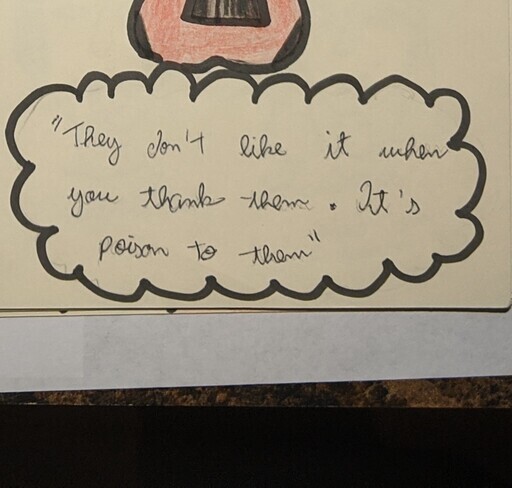 "They don't like it when
you thank them. It's
poison to them"